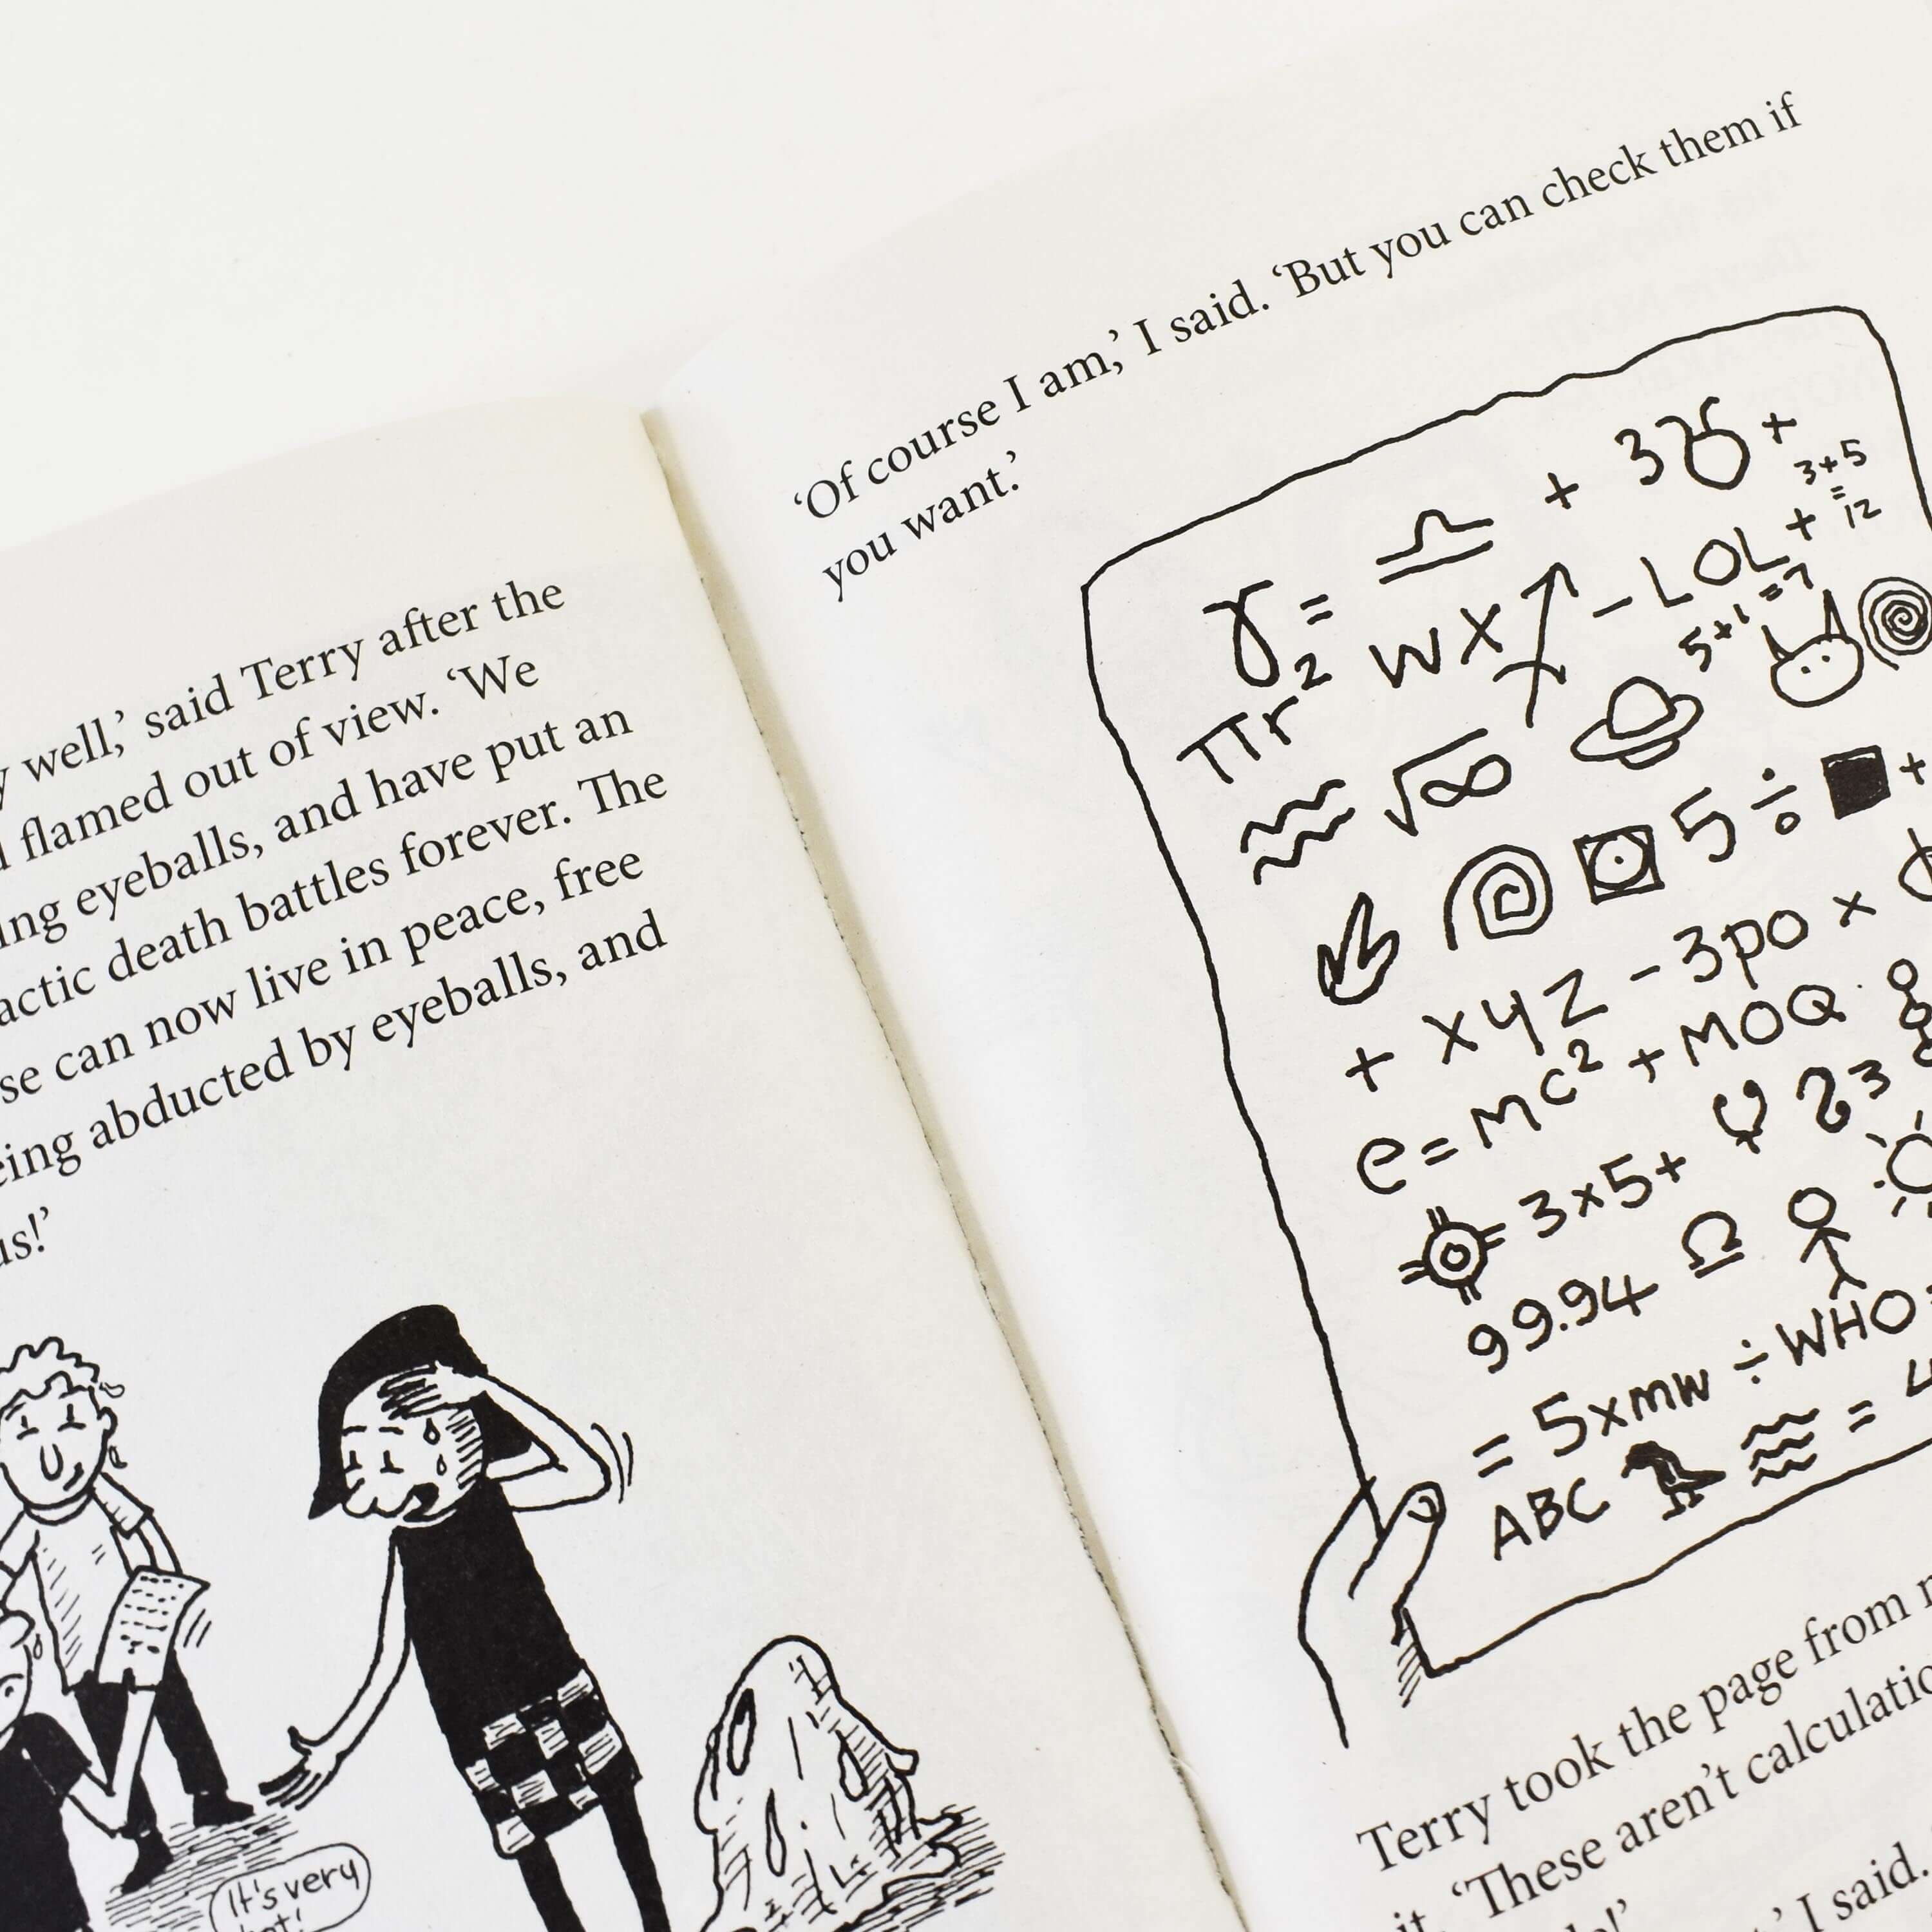 well,’ said Terry after the
flamed out of view. ‘We
eyeballs, and have put an
death battles forever. The
can now live in peace, free
abducted by eyeballs, and
us!’
It's very
‘Of course I am,’ I said. ‘But you can check them if
you want.’
γ = ♎ + 3♉ +
3+5
=
12
πr² WX - LOL +
5+1=7
√∞
5 ÷ ■ +
+ XYZ - 3PO ×
e=mc² + MOQ
3×5+
99.94
= 5xmw ÷ WHO
ABC =
Terry took the page from
it. ‘These aren’t
I said.